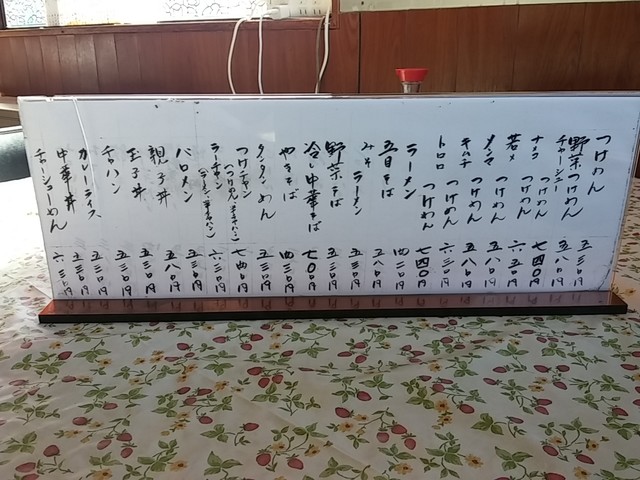 つけめん 五三〇円
野菜つけめん 五八〇円
チャーシューつけめん 七四〇円
つけめん 六五〇円
若メつけめん 五八〇円
メンマつけめん 五八〇円
つけめん 六三〇円
トロロつけめん 七四〇円
ラーメン 四二〇円
五目そば 五八〇円
みそラーメン 五三〇円
野菜そば 五三〇円
冷し中華そば 七〇〇円
やきそば 四三〇円
タンタンめん 五三〇円
つけチャン 七四〇円
ラーチャン 六三〇円
バロメン 五三〇円
親子丼 五八〇円
玉子丼 五三〇円
チャハン 五三〇円
カレーライス 五三〇円
中華丼 五三〇円
チャーシューめん 六三〇円